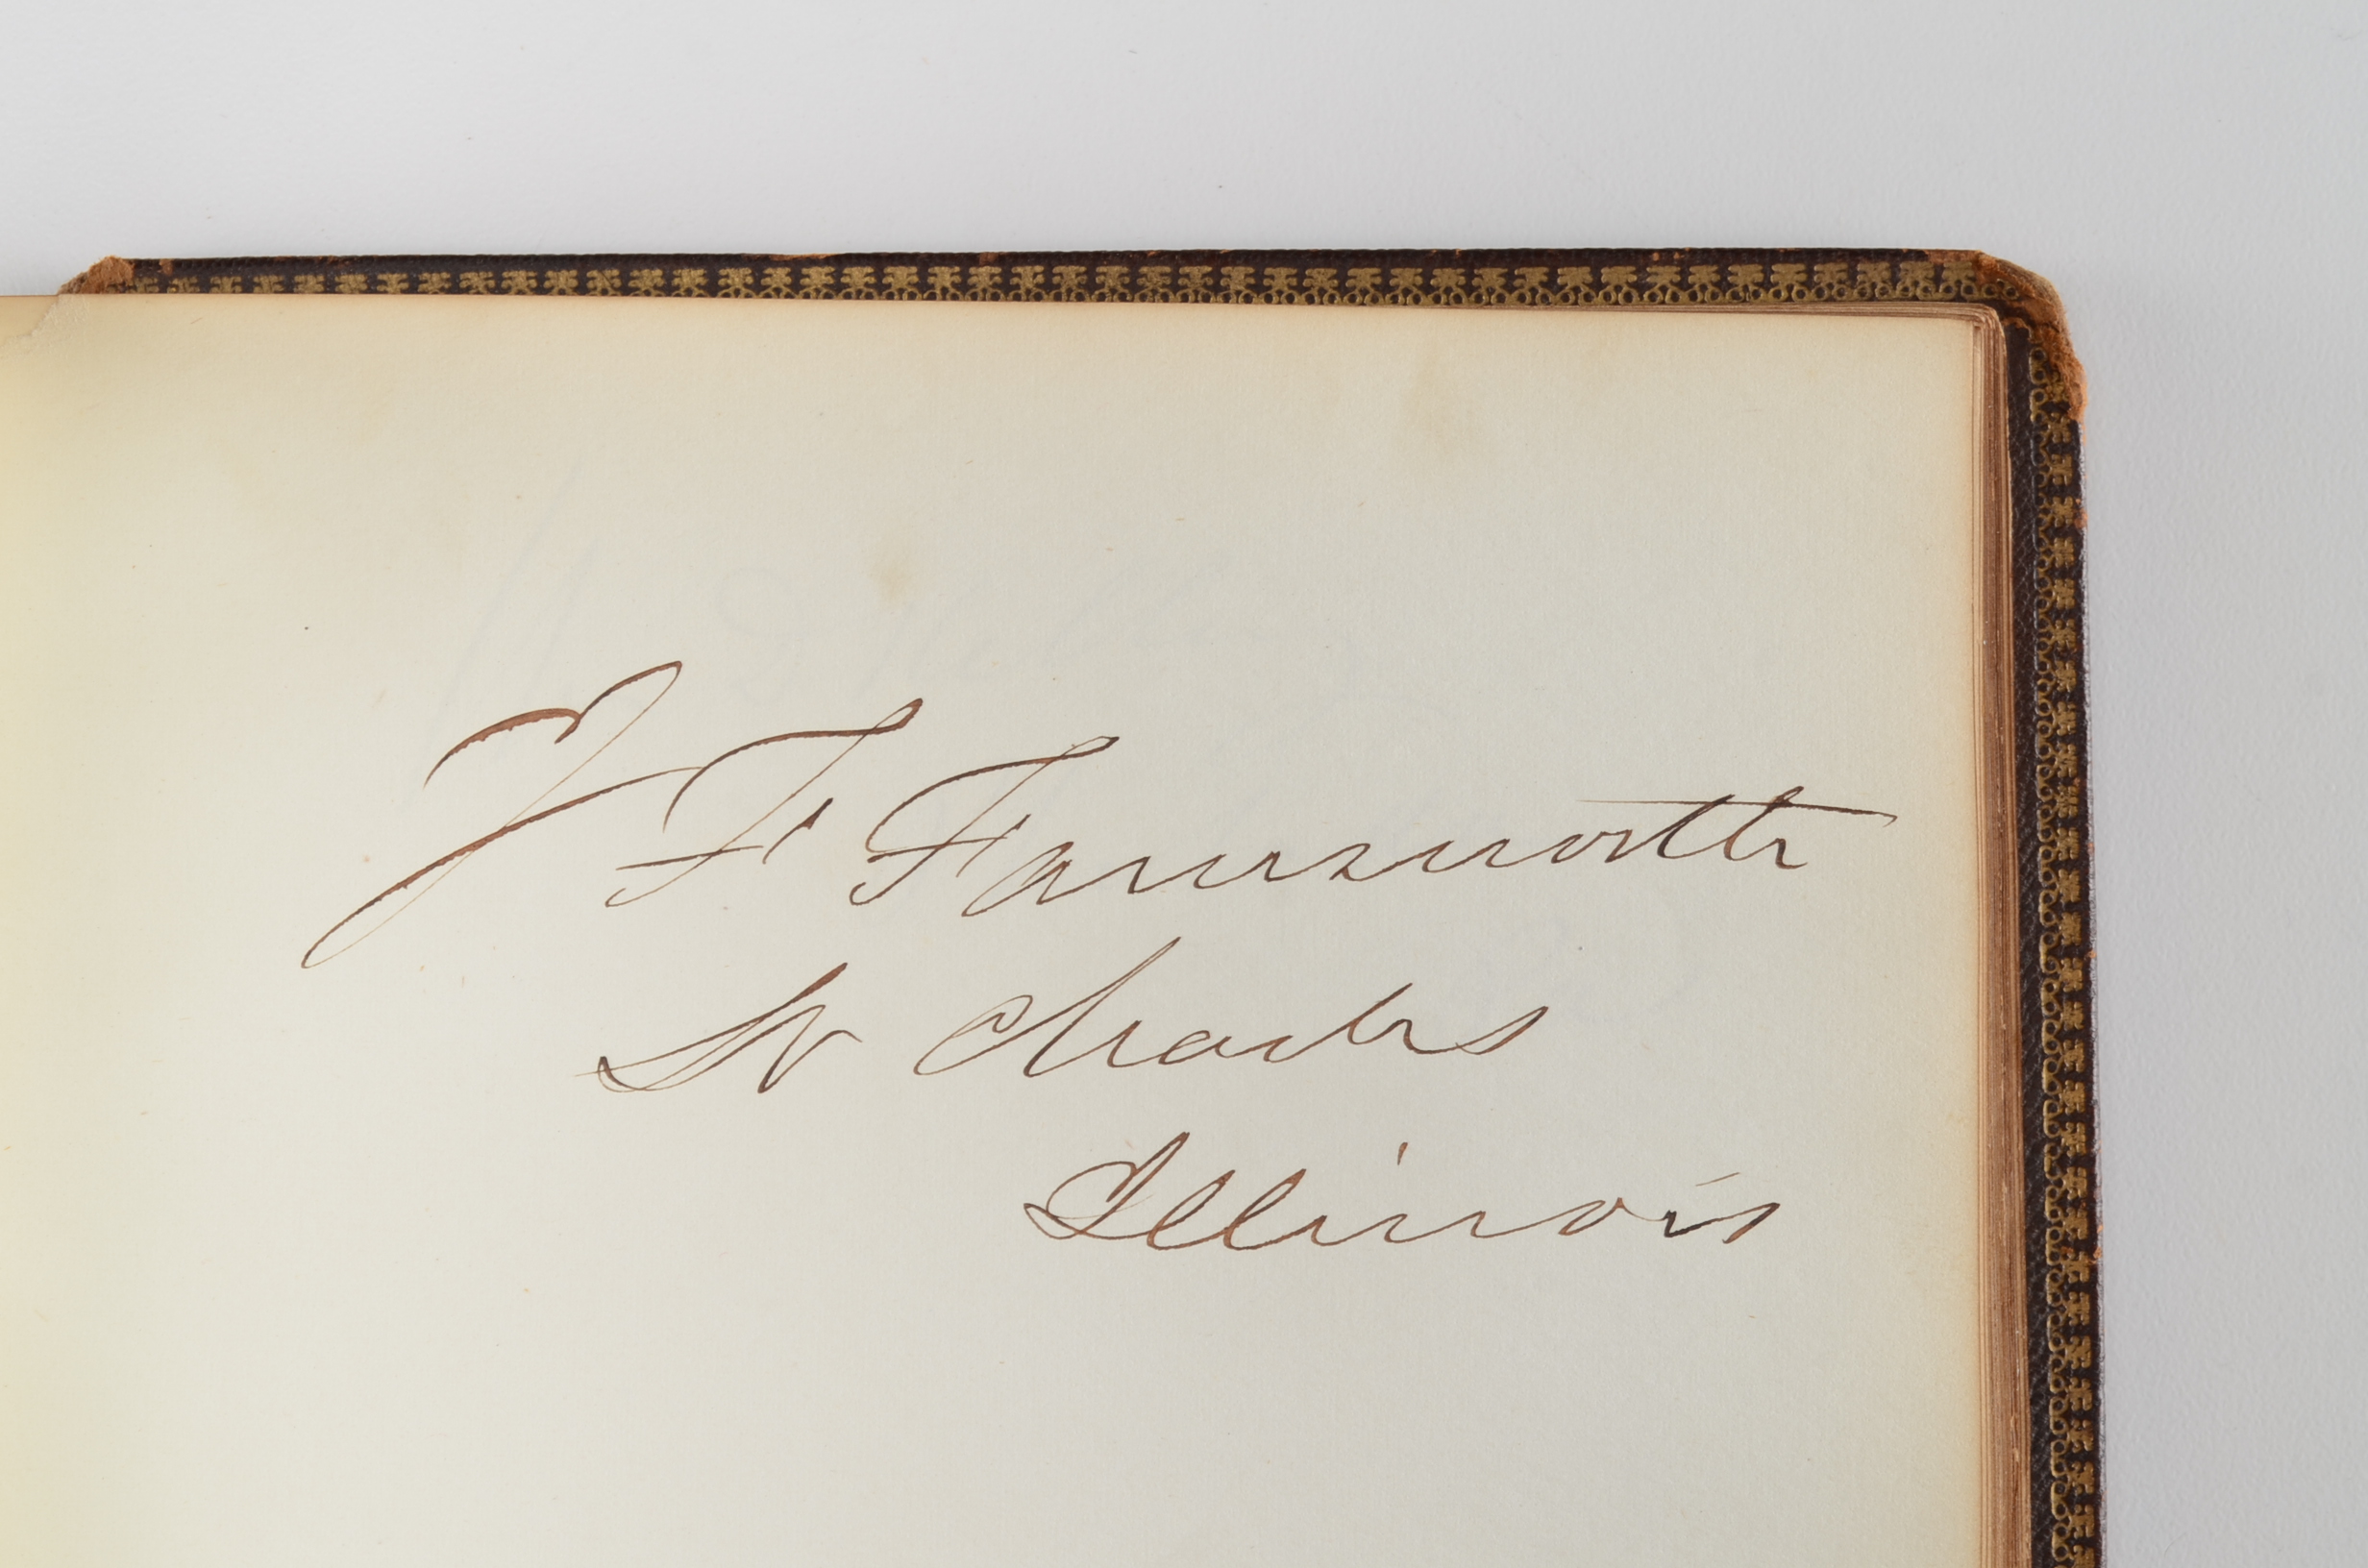 J F Farnsworth
St Charles
Illinois